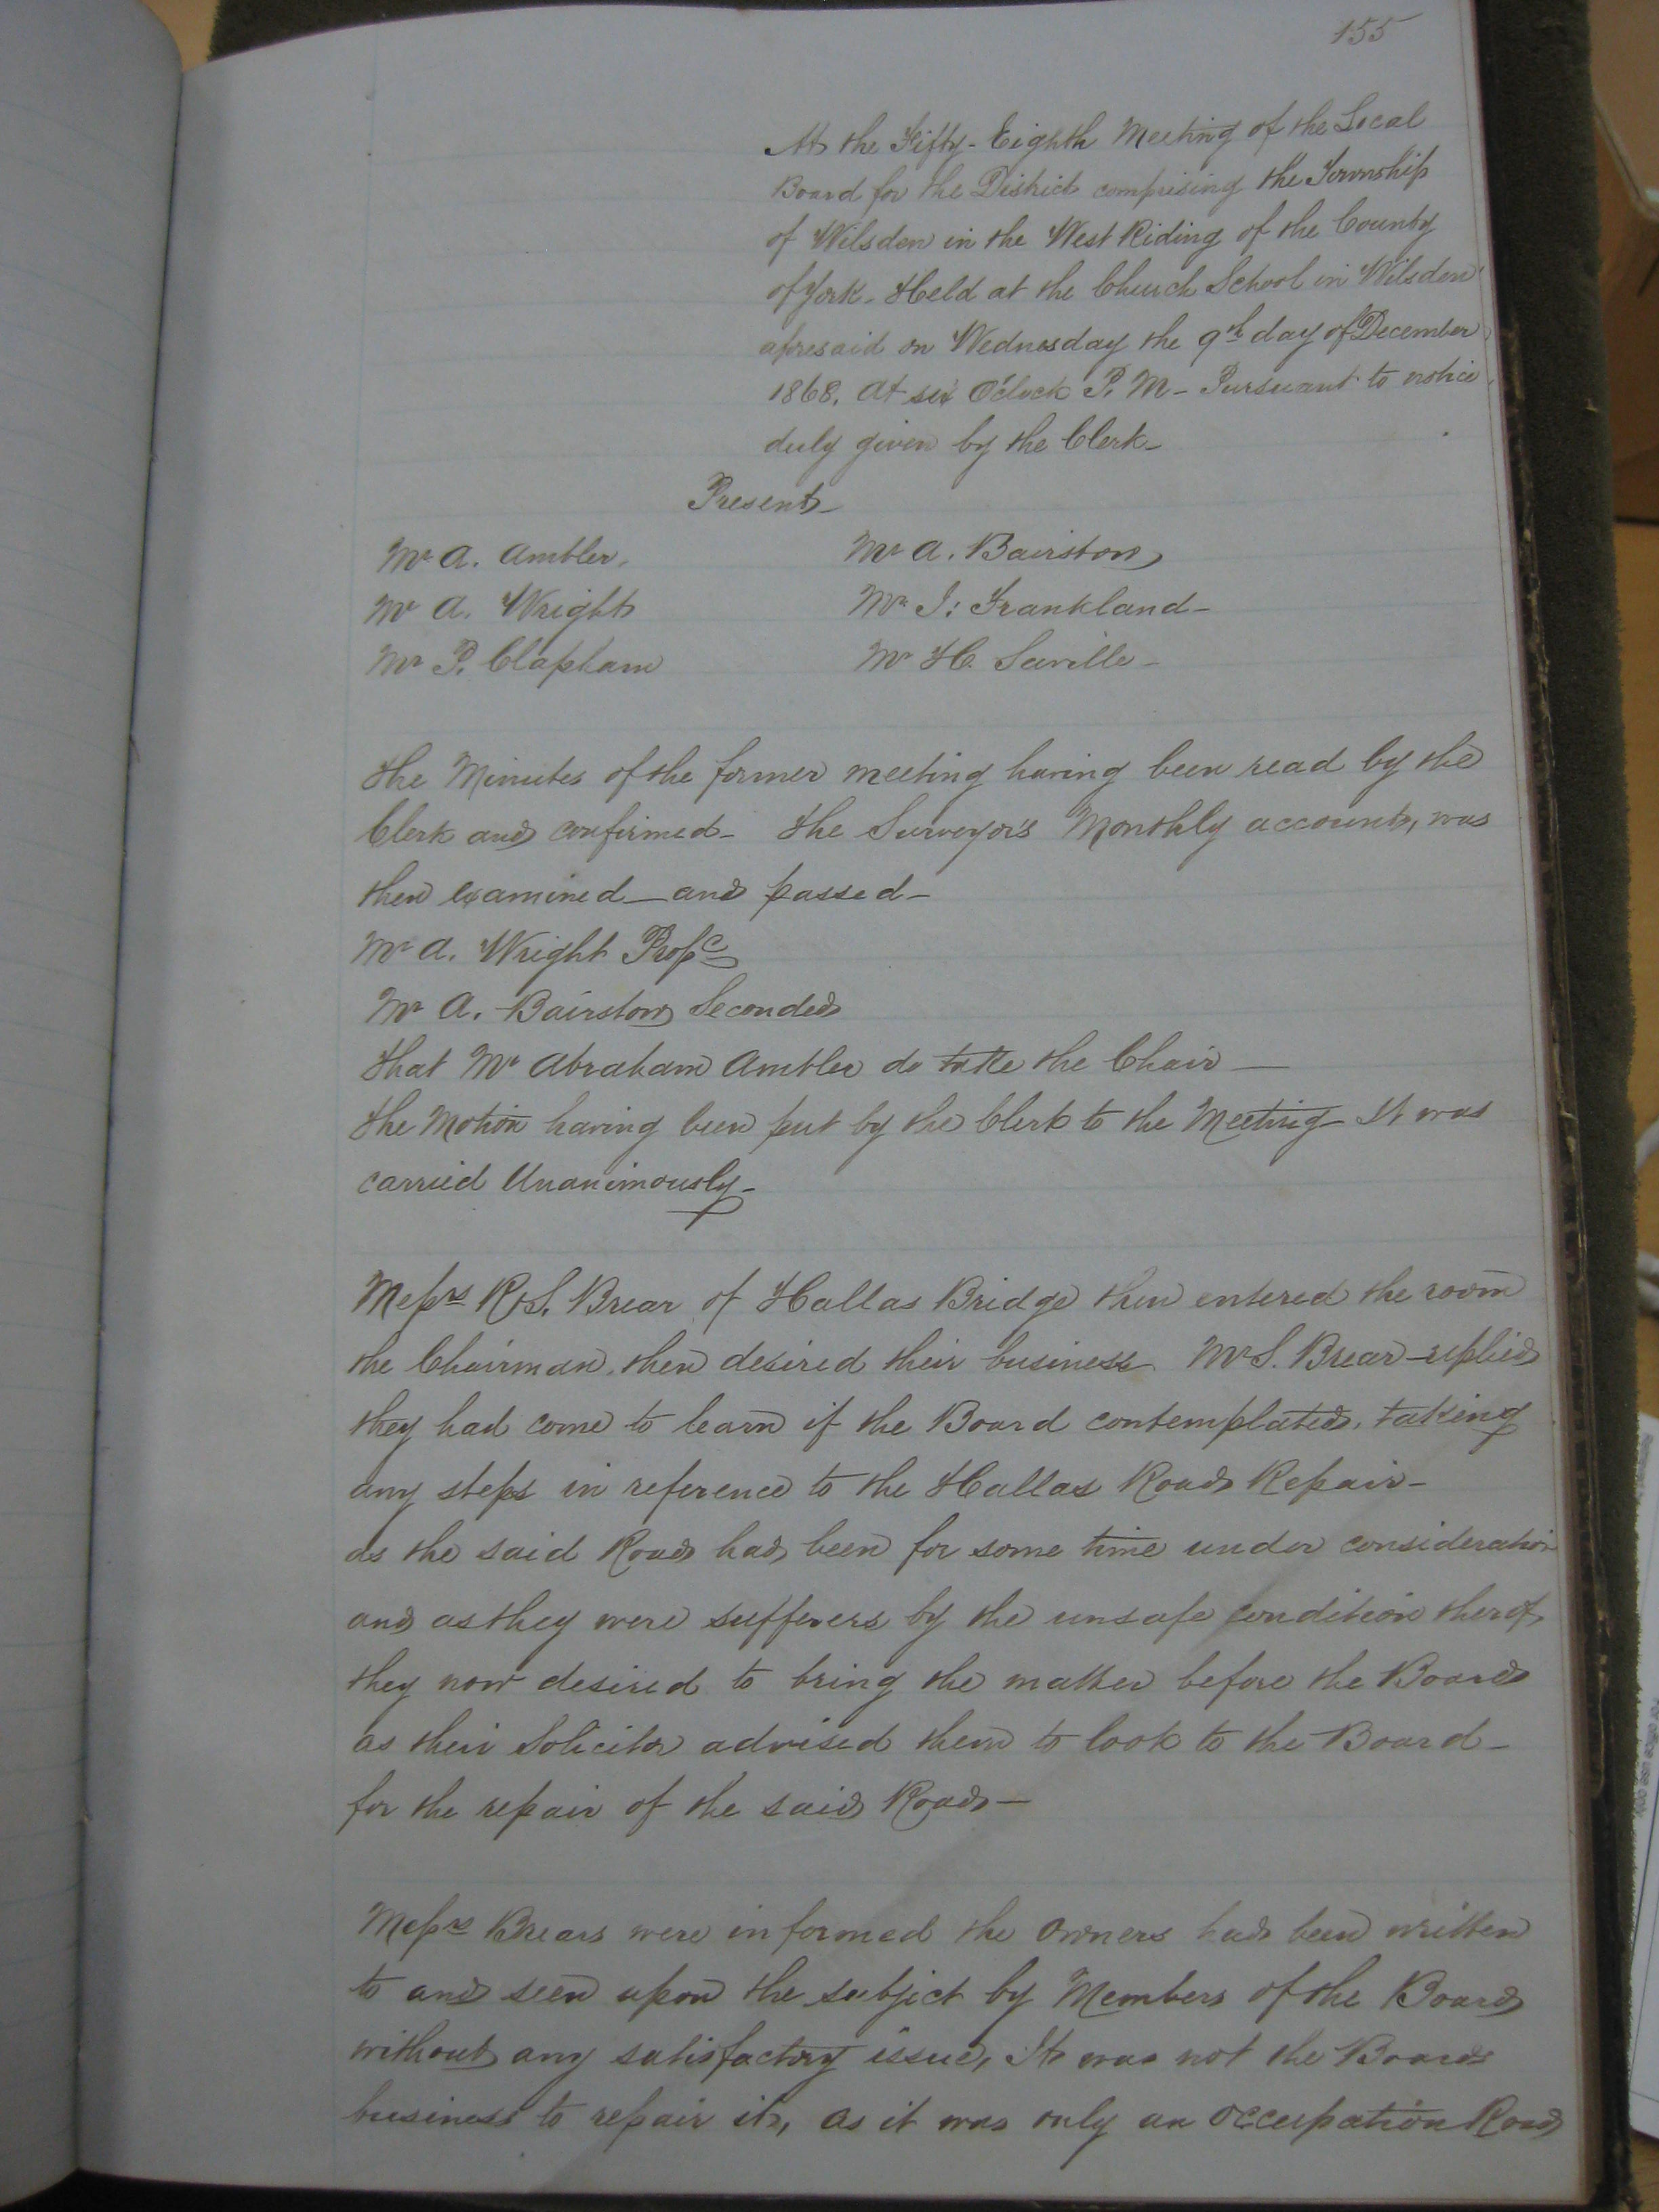 155
At the Fifty-Eighth Meeting of the Local
Board for the District comprising the Township
of Wilsden in the West Riding of the County
of York. Held at the Church School in Wilsden
aforesaid on Wednesday the 9th day of December
1868. At six O'Clock P. M - Pursuant to notice
duly given by the Clerk -
Present -
Mr A. Ambler. Mr A. Bairstow
Mr A. Wright Mr J: Frankland -
Mr P. Clapham Mr H. Saville -
The Minutes of the former meeting having been read by the
Clerk and confirmed - The Surveyor's Monthly account, was
then examined - and passed -
Mr A. Wright Propd
Mr A. Bairstow Seconded
That Mr Abraham Ambler do take the Chair -
The Motion having been put by the Clerk to the Meeting It was
carried Unanimously -
Messrs R & S. Brear of Hallas Bridge then entered the room
the Chairman then desired their business Mr S. Brear replied
they had come to learn if the Board contemplated, taking
any steps in reference to the Hallas Road Repair -
as the said Road had been for some time under consideration
and as they were sufferers by the unsafe condition therof
they now desired to bring the matter before the Board
as their Solicitor advised them to look to the Board -
for the repair of the said Road -
Messrs Brears were informed the Owners had been written
to and seen upon the subject by Members of the Board
without any satisfactory issue, It was not the Boards
business to repair it, as it was only an Occupation Road